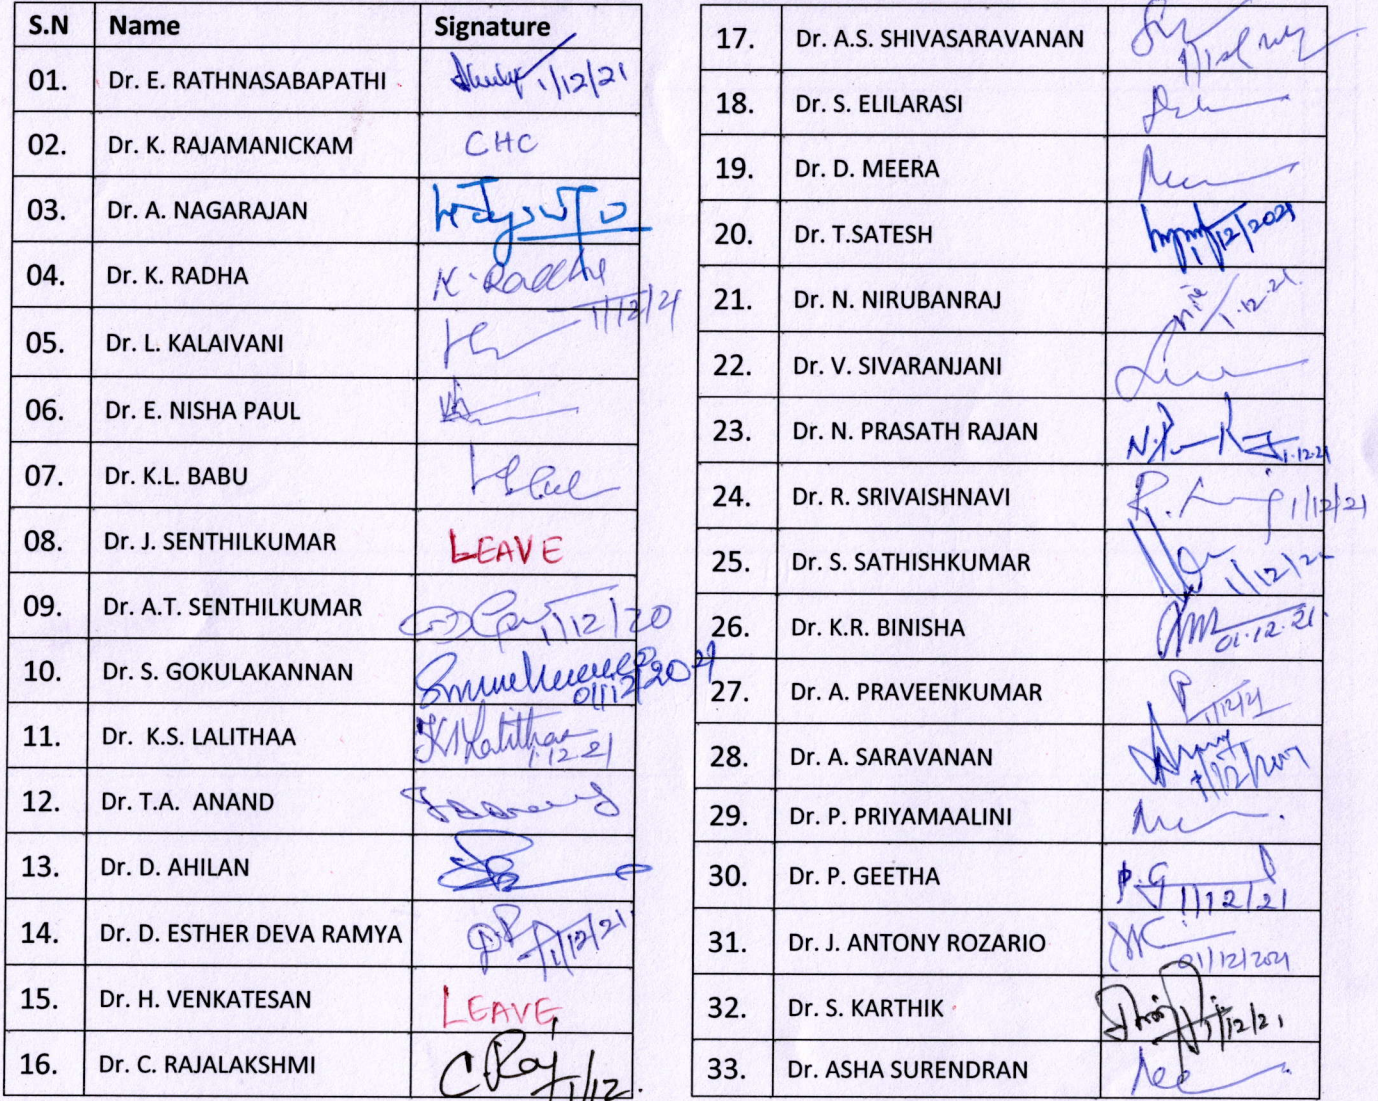 S.N Name Signature
01. Dr. E. RATHNASABAPATHI 1/12/21
02. Dr. K. RAJAMANICKAM CHC
03. Dr. A. NAGARAJAN
04. Dr. K. RADHA K. Radha 1/12/21
05. Dr. L. KALAIVANI
06. Dr. E. NISHA PAUL
07. Dr. K.L. BABU
08. Dr. J. SENTHILKUMAR LEAVE
09. Dr. A.T. SENTHILKUMAR 1/12/20
10. Dr. S. GOKULAKANNAN 01/12/2021
11. Dr. K.S. LALITHAA KS Lalithaa 1.12.21
12. Dr. T.A. ANAND
13. Dr. D. AHILAN
14. Dr. D. ESTHER DEVA RAMYA 1/12/21
15. Dr. H. VENKATESAN LEAVE
16. Dr. C. RAJALAKSHMI C Raj 1/12.
17. Dr. A.S. SHIVASARAVANAN
18. Dr. S. ELILARASI
19. Dr. D. MEERA
20. Dr. T.SATESH 1/12/2021
21. Dr. N. NIRUBANRAJ 1.12.21.
22. Dr. V. SIVARANJANI
23. Dr. N. PRASATH RAJAN 1.12.21
24. Dr. R. SRIVAISHNAVI 1/12/21
25. Dr. S. SATHISHKUMAR
26. Dr. K.R. BINISHA 01.12.21.
27. Dr. A. PRAVEENKUMAR 1/12/21
28. Dr. A. SARAVANAN 1/12/2021
29. Dr. P. PRIYAMAALINI
30. Dr. P. GEETHA P.G 1/12/21
31. Dr. J. ANTONY ROZARIO 01/12/2021
32. Dr. S. KARTHIK 1/12/21
33. Dr. ASHA SURENDRAN